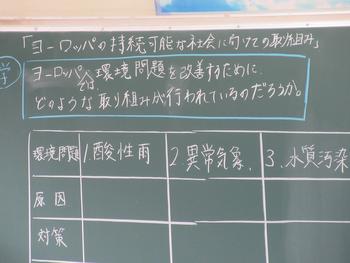 「ヨーロッパの持続可能な社会に向けての取り組み」
学
ヨーロッパでは、環境問題を改善するために
どのような取り組みが行われているのだろうか。
環境問題 1 酸性雨 2 異常気象. 3. 水質汚染
原因
対策